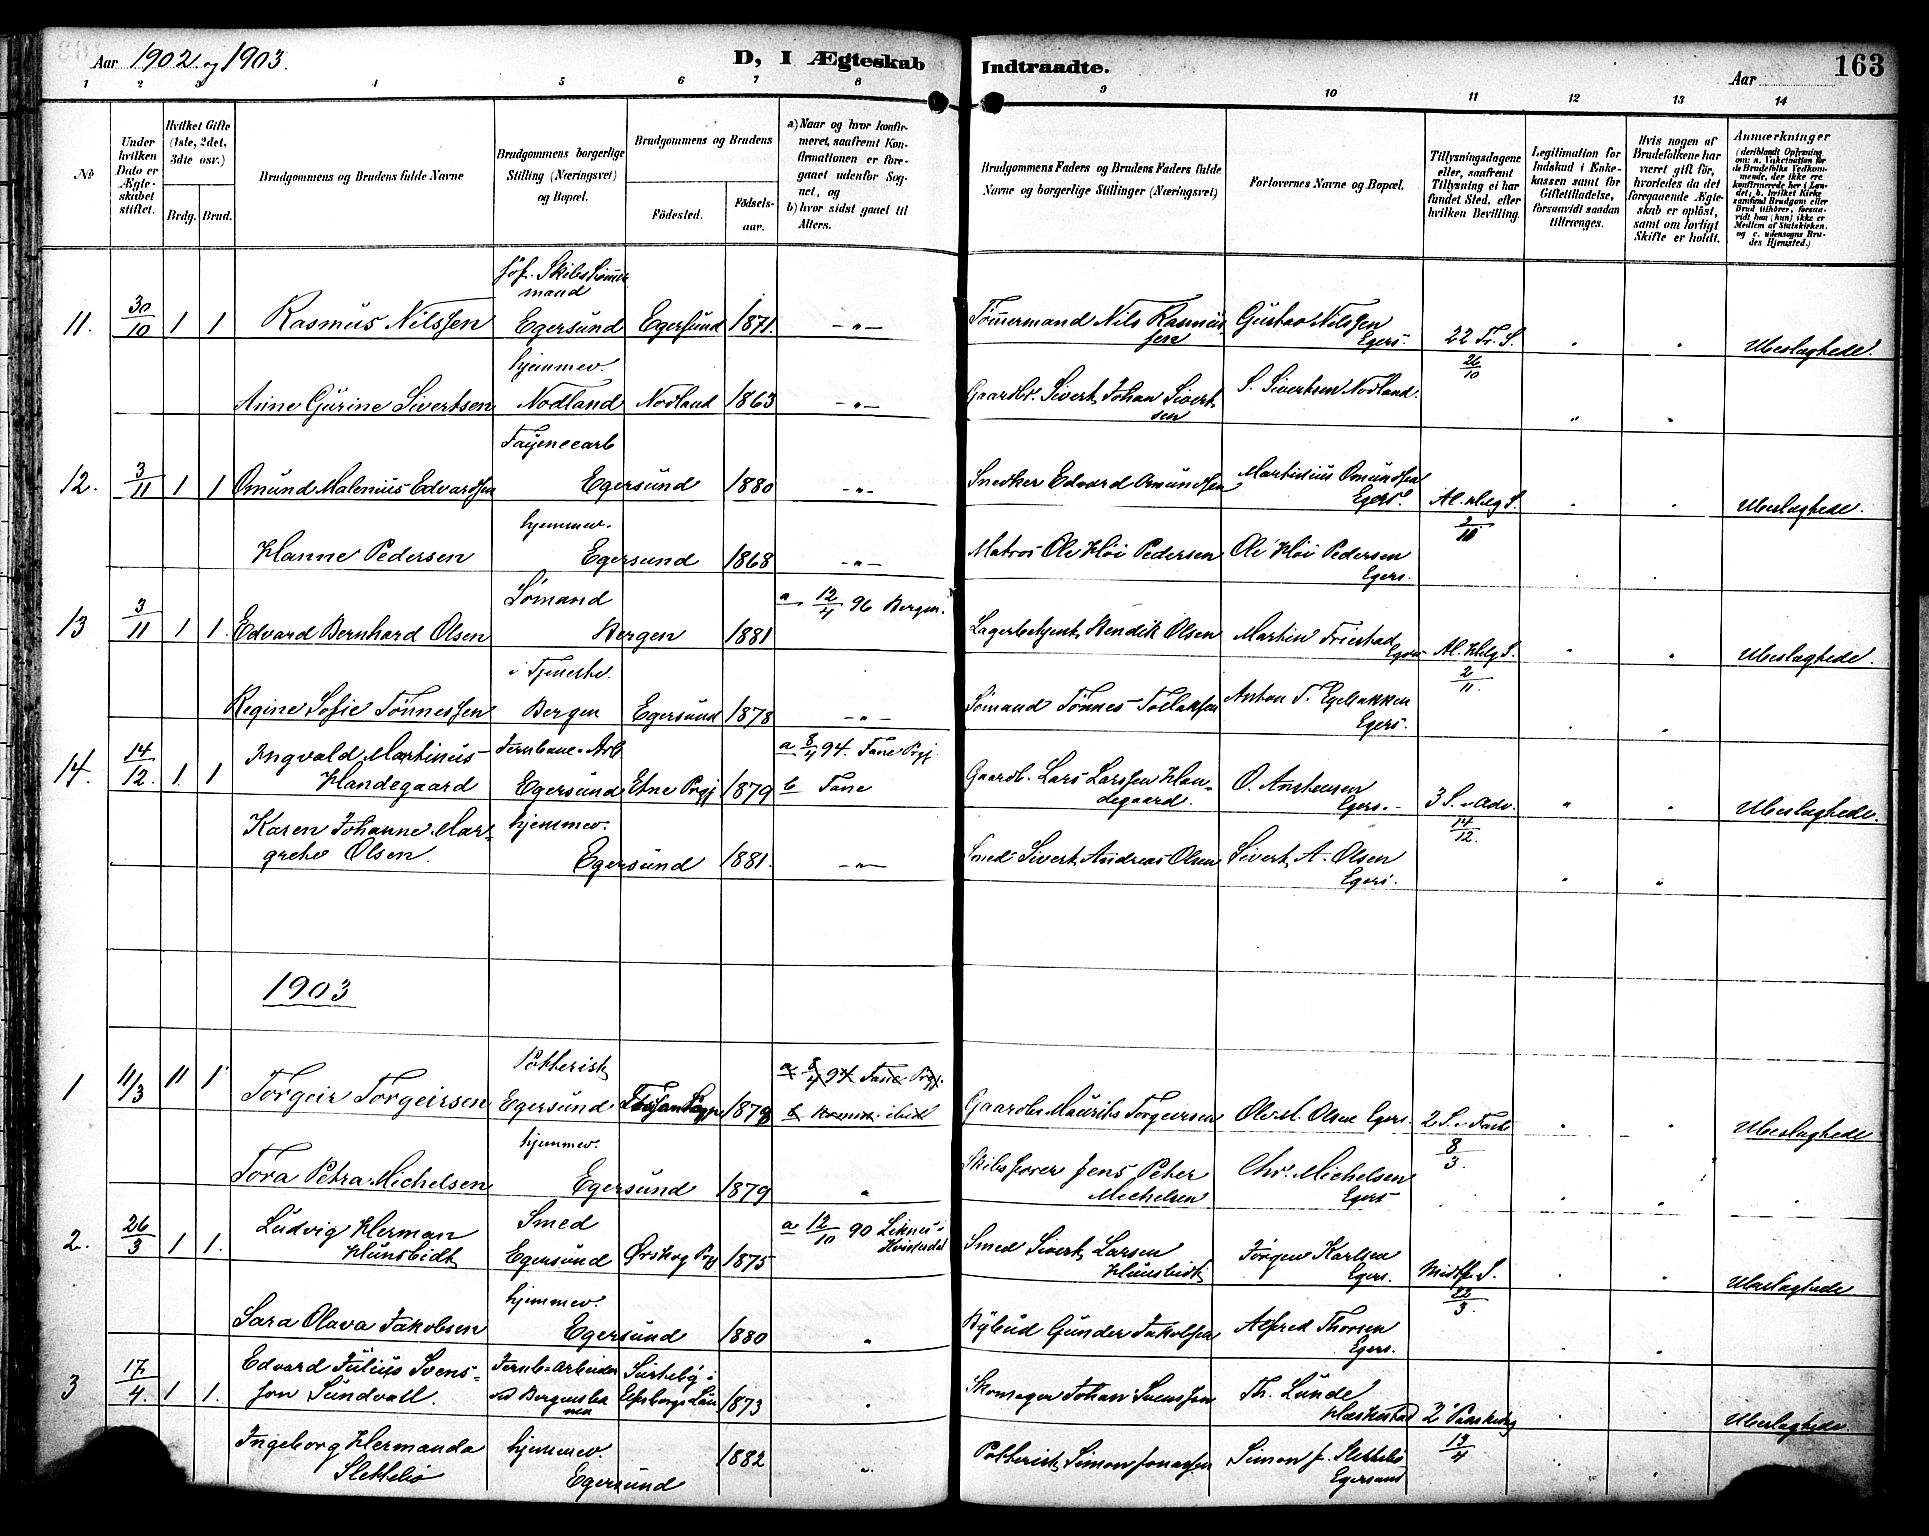 Aar 1902 og 1903.
D, I Ægteskab Indtraadte.
Aar 163
1 2 3 4 5 6 7 8 9 10 11 12 13 14
No
Under hvilken Dato er Ægteskabet stiftet.
Hvilket Gifte (1ste, 2det, 3dte osv.)
Brdg. Brud.
Brudgommens og Brudens fulde Navne
Brudgommens borgerlige Stilling (Næringsvei) og Bopæl.
Brudgommens og Brudens
Fødested. Fødselsaar.
a) Naar og hvor konfirmeret, saafremt Konfirmationen er foregaaet udenfor Sognet, og
b) hvor sidst gaaet til Alters.
Brudgommens Faders og Brudens Faders fulde Navne og borgerlige Stillinger (Næringsvei)
Forlovernes Navne og Bopæl.
Tillysningsdagene eller, saafremt Tillysning ei har fundet Sted, efter hvilken Bevilling.
Legitimation for Indskud i Enkekassen samt for Giftetilladelse, forsaavidt saadan tiltrænges.
Hvis nogen af Brudefolkene har været gift før, hvorledes da det foregaaende Ægteskab er opløst, samt om lovligt Skifte er holdt.
Anmærkninger (deriblandt Oplysning om: a. Vakcination for de Brudefolks Vedkommende, der ikke ere konfirmerede her i Landet; b. hvilket Kirkesamfund Brudgom eller Brud tilhører, forsaavidt han (hun) ikke er Medlem af Statskirken. og c. udensogns Brudes Hjemsted.)
11. 30/10 1 1 Rasmus Nilssen Skibstømmermand Egersund Egersund 1871. -"- Tømmermand Nils Rasmussen Gustav Nilssen Egers. 22 Tr. S. " " Ubeslægtede.
Anne Gurine Sivertsen hjemmev. Nodland Nodland 1863 -"- Gaardbr. Sivert Johan Sivertsen S. Sivertsen Nodland. 26/10 " "
12. 3/11 1 1 Omund Malenius Edvardsen Fayencearb Egersund 1880 -"- Snedker Edvard Omundsen Martinius Omundsen Egers. Al. Helg S. " " Ubeslægtede.
Hanne Pedersen hjemmev. Egersund 1868 -"- Matros Ole Høi Pedersen Ole Høi Pedersen Egers.
13 3/11 1 1. Edvard Bernhard Olsen Sømand Bergen 1881 a 12/4 96 Bergen. Lagerbetjent Hendik Olsen Martin Friestad Egers Al. Helg S. " " Ubeslægtede.
Regine Sofie Tønnessen i Tjeneste. Bergen Egersund 1878 -"- Sømand Tønnes Tollaksen Anton T. Egebakken Egers. 2/11.
14. 14/12. 1. 1 Ingvald Martinus Handegaard Jernbane-Arb Egersund Etne Prgj 1879 a 8/4 94. Fane Prgj b Fane Gaardb. Lars Larssen Handegaard. O. Anstensen Egers. 3 S. i Adv. " " Ubeslægtede.
Karen Johanne Margrethe Olsen. hjemmev. Egersund 1881. -"- Smed Sivert Andreas Olsen Sivert A. Olsen Egers. 14/12. " "
1903
1 11/3 1 1 Torgeir Torgeirsen Pottherisk Egersund 1879 a 8/4 94 Fane Prgj. b ibid Gaardbr Maurits Torgeirsen Olsen Egers. 2 S. i Faste " " Ubeslægtede
Tora Petra Michelsen hjemmev. Egersund 1879 " Skibsfører Jens Peter Michelsen Chr. Michelsen Egers 8/3. " "
2. 26/3 1 1. Ludvig Herman Hunsbidt Smed Egersund Ørskog Prgj 1875 a 12/10 90 Liknes i Kvinesdal Smed Sivert Larsen Hunsbidt Jørgen Karlsen Egers. Midtf. S. " " Ubeslægtede
Sara Olava Jakobsen hjemmev. Egersund 1880 " Bybud Gunder Jakobsen Alfred Thorsen Egers. 22/3. "
3 17/4. 1 1. Edvard Julius Svensson Sundvall. Jernb-Arbeider ved Bergensbanen Surteby i Elfsborgs Län 1873 " Skomager Johan Svenssen Th. Lunde Hæskestad 2 Paaskedag " " Ubeslægtede
Ingeborg Hermanda Slettebø hjemmev. Egersund 1882 " Pottherisk Simon Jonassen Simon J. Slettebø Egersund 13/4 "